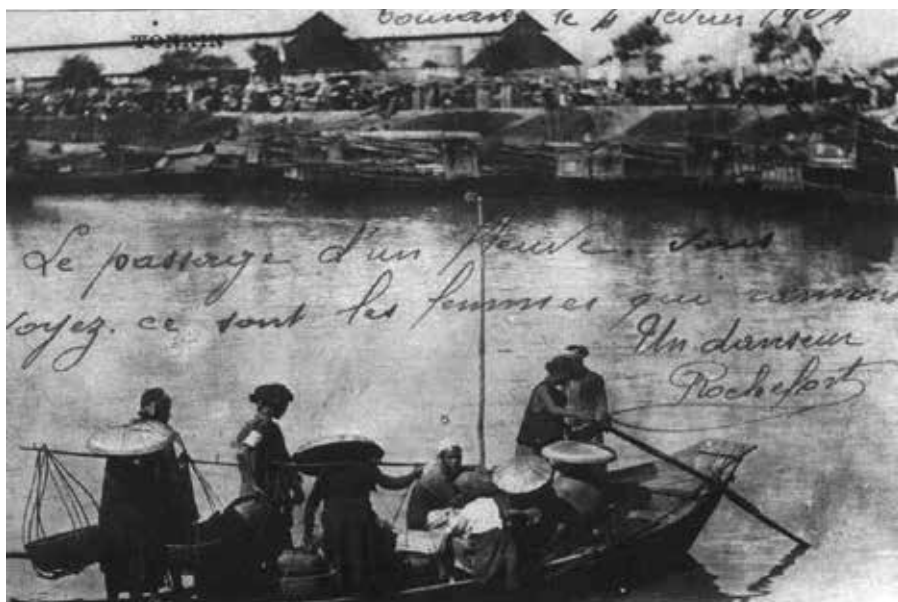 Tourane le 4 février 1904
TONKIN
Le passage d'un fleuve. Vous
voyez. ce sont les femmes qui rament
Un danseur
Rochefort